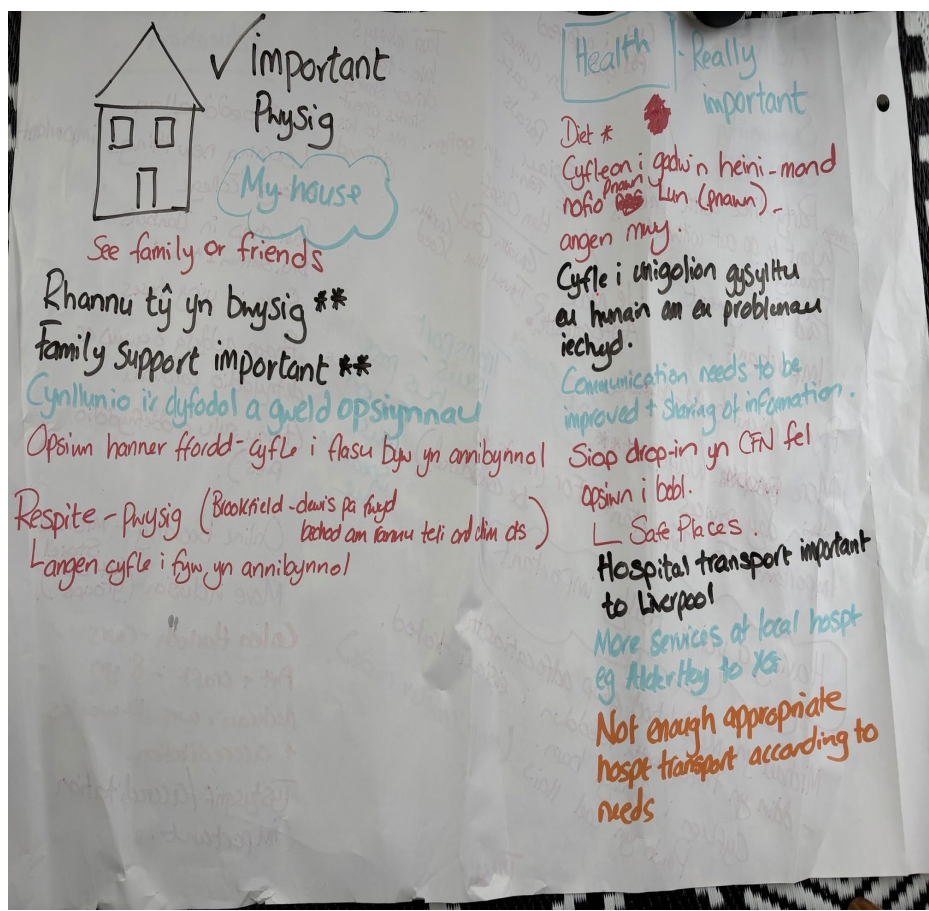 ✓ important
Pwysig
My house
See family or friends
Rhannu tŷ yn bwysig **
Family support important **
Cynllunio i'r dyfodol a gweld opsiynnau
Opsiwn hanner ffordd - cyfle i flasu byw yn annibynnol
Respite - Pwysig (Brookfield - dewis pa fwyd
bechod am rannu teli ond dim ots)
angen cyfle i fyw yn annibynnol
Health - Really
important
Diet *
Cyfleon i gadw'n heini - mond
nofio pnawn Lun (pnawn) -
angen mwy.
Cyfle i unigolion gysylltu
eu hunain am eu problemau
iechyd.
Communication needs to be
improved + sharing of information.
Siop drop-in yn CFN fel
opsiwn i bobl.
Safe Places.
Hospital transport important
to Liverpool
More services at local hospt
eg Alder Hey to YG
Not enough appropriate
hospt transport according to
needs